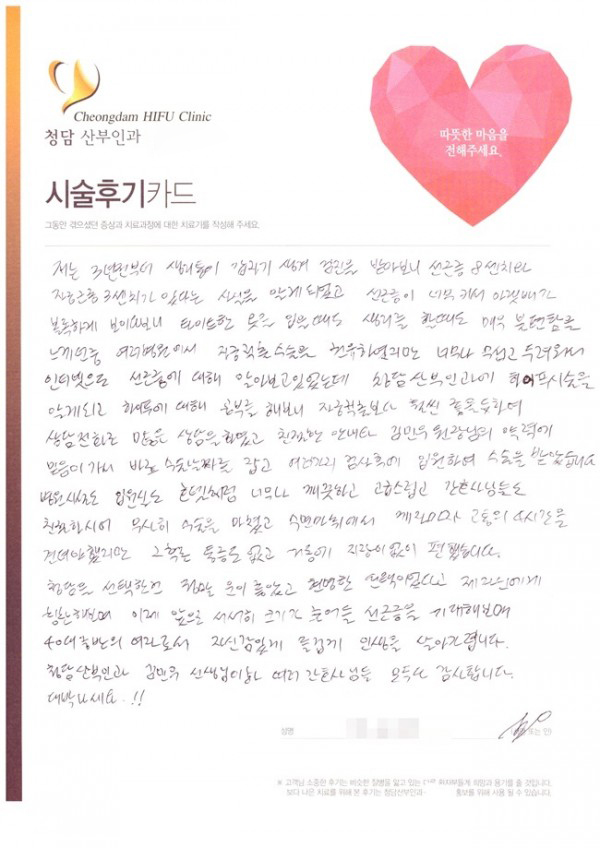 Cheongdam HIFU Clinic
청담 산부인과
따뜻한 마음을
전해주세요.
시술후기카드
그동안 겪으셨던 증상과 치료과정에 대한 치료기를 작성해 주세요.
저는 3년전부터 생리통이 갑자기 생겨 검진을 받아보니 선근증 8센치와
자궁근종 3센치가 있다는 사실을 알게되었고 선근증이 너무 커서 아랫배가
볼록하게 보이다보니 타이트한 옷을 입을때도 생리를 할때도 매우 불편함을
느끼던중 여러병원에서 자궁적출수술을 권유하였지만 너무나 무섭고 두려워서
인터넷으로 선근증에 대해 알아보고있었는데 청담산부인과에 하이푸시술을
알게되고 하이푸에 대해 공부를 해보니 자궁적출보다 훨씬 좋을듯하여
상담전화로 많은 상담을 하였고 친절한 안내와 김민우 원장님의 약력에
믿음이 가서 바로 수술날짜를 잡고 여러가지 검사후에 입원하여 수술을 받았습니다
병원시설도 입원실도 호텔처럼 너무나 깨끗하고 고급스럽고 간호사님들도
친절하시어 무사히 수술을 마쳤고 수면마취에서 깨자마자 고통의 4시간을
견뎌야했지만 그후론 통증도 없고 거동에 지장이없이 편했습니다.
청담을 선택한건 정말 운이 좋았고 현명한 선택이었다고 제 자신에게
칭찬해보며 이제 앞으로 서서히 크기가 줄어들 선근증을 기대해보며
40대 중반의 여자로서 자신감있게 즐겁게 인생을 살아가렵니다.
청담산부인과 김민우 선생님이하 여러 간호사님들 모두다 감사합니다.
대박나세요..!!
성명
또는 인)
※ 고객님 소중한 후기는 비슷한 질병을 앓고 있는 환자분들에게 희망과 용기를 줄 것입니다.
보다 나은 치료를 위해 본 후기는 청담산부인과- 홍보를 위해 사용 될 수 있습니다.